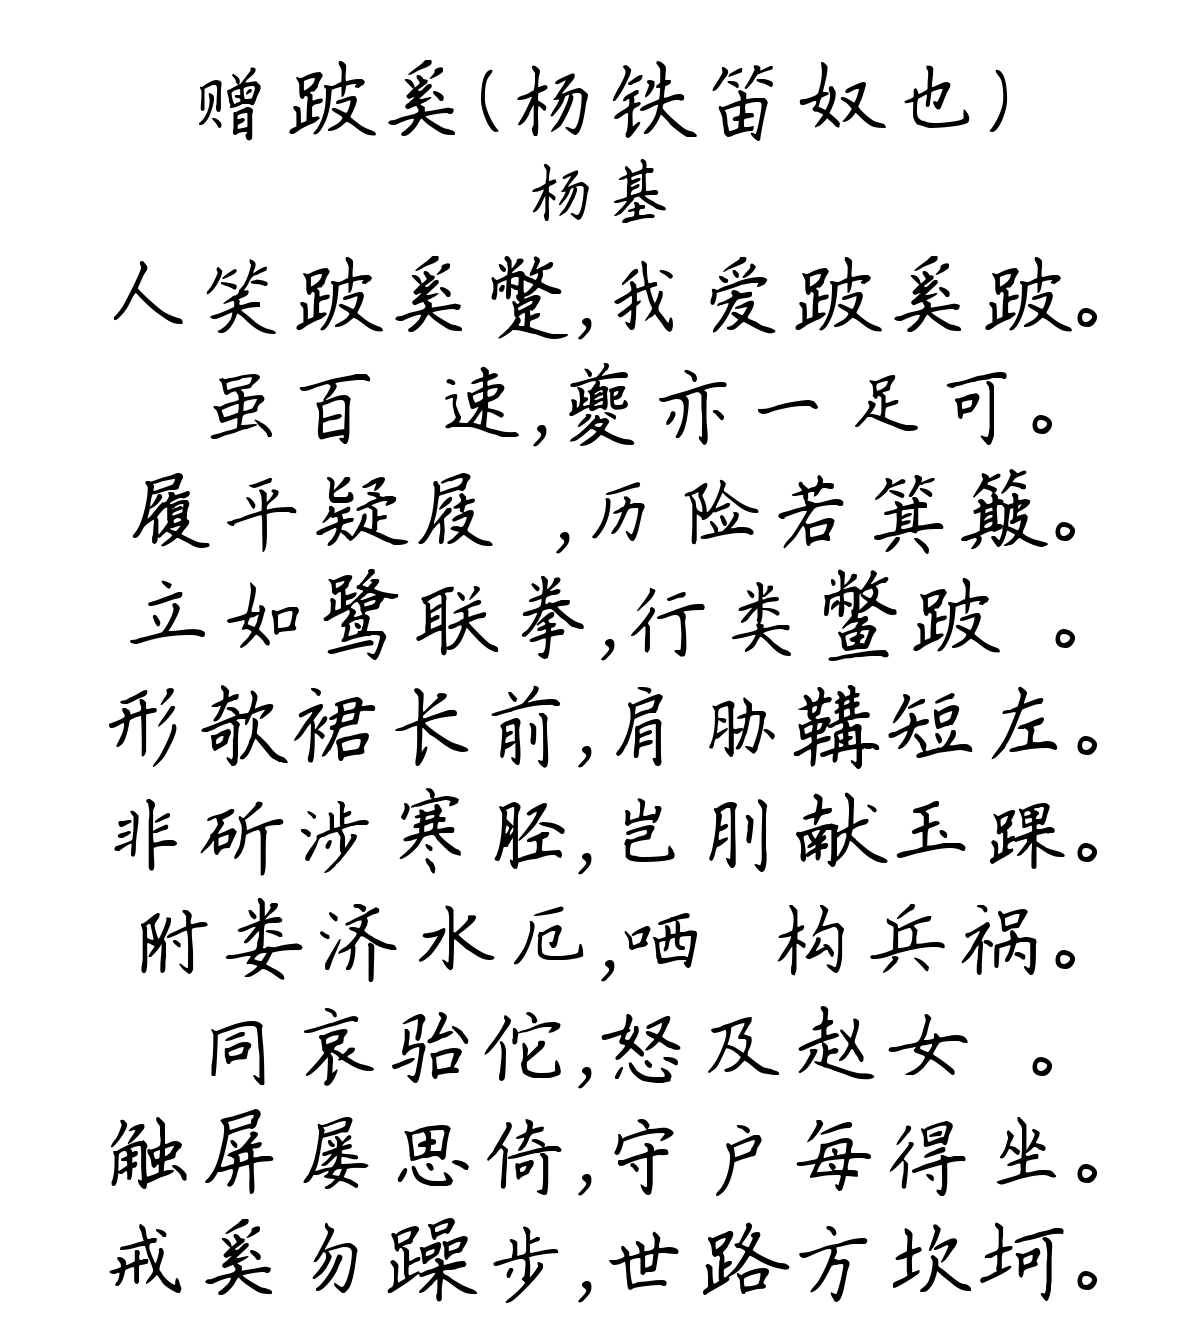 赠跛奚(杨铁笛奴也)
杨基
人笑跛奚蹩,我爱跛奚跛。
虽百 速,夔亦一足可。
履平疑屐 ,历险若箕簸。
立如鹭联拳,行类鳖跛 。
形欹裙长前,肩胁鞲短左。
非斫涉寒胫,岂刖献玉踝。
附娄济水厄,哂 构兵祸。
同哀骀佗,怒及赵女 。
触屏屡思倚,守户每得坐。
戒奚勿躁步,世路方坎坷。